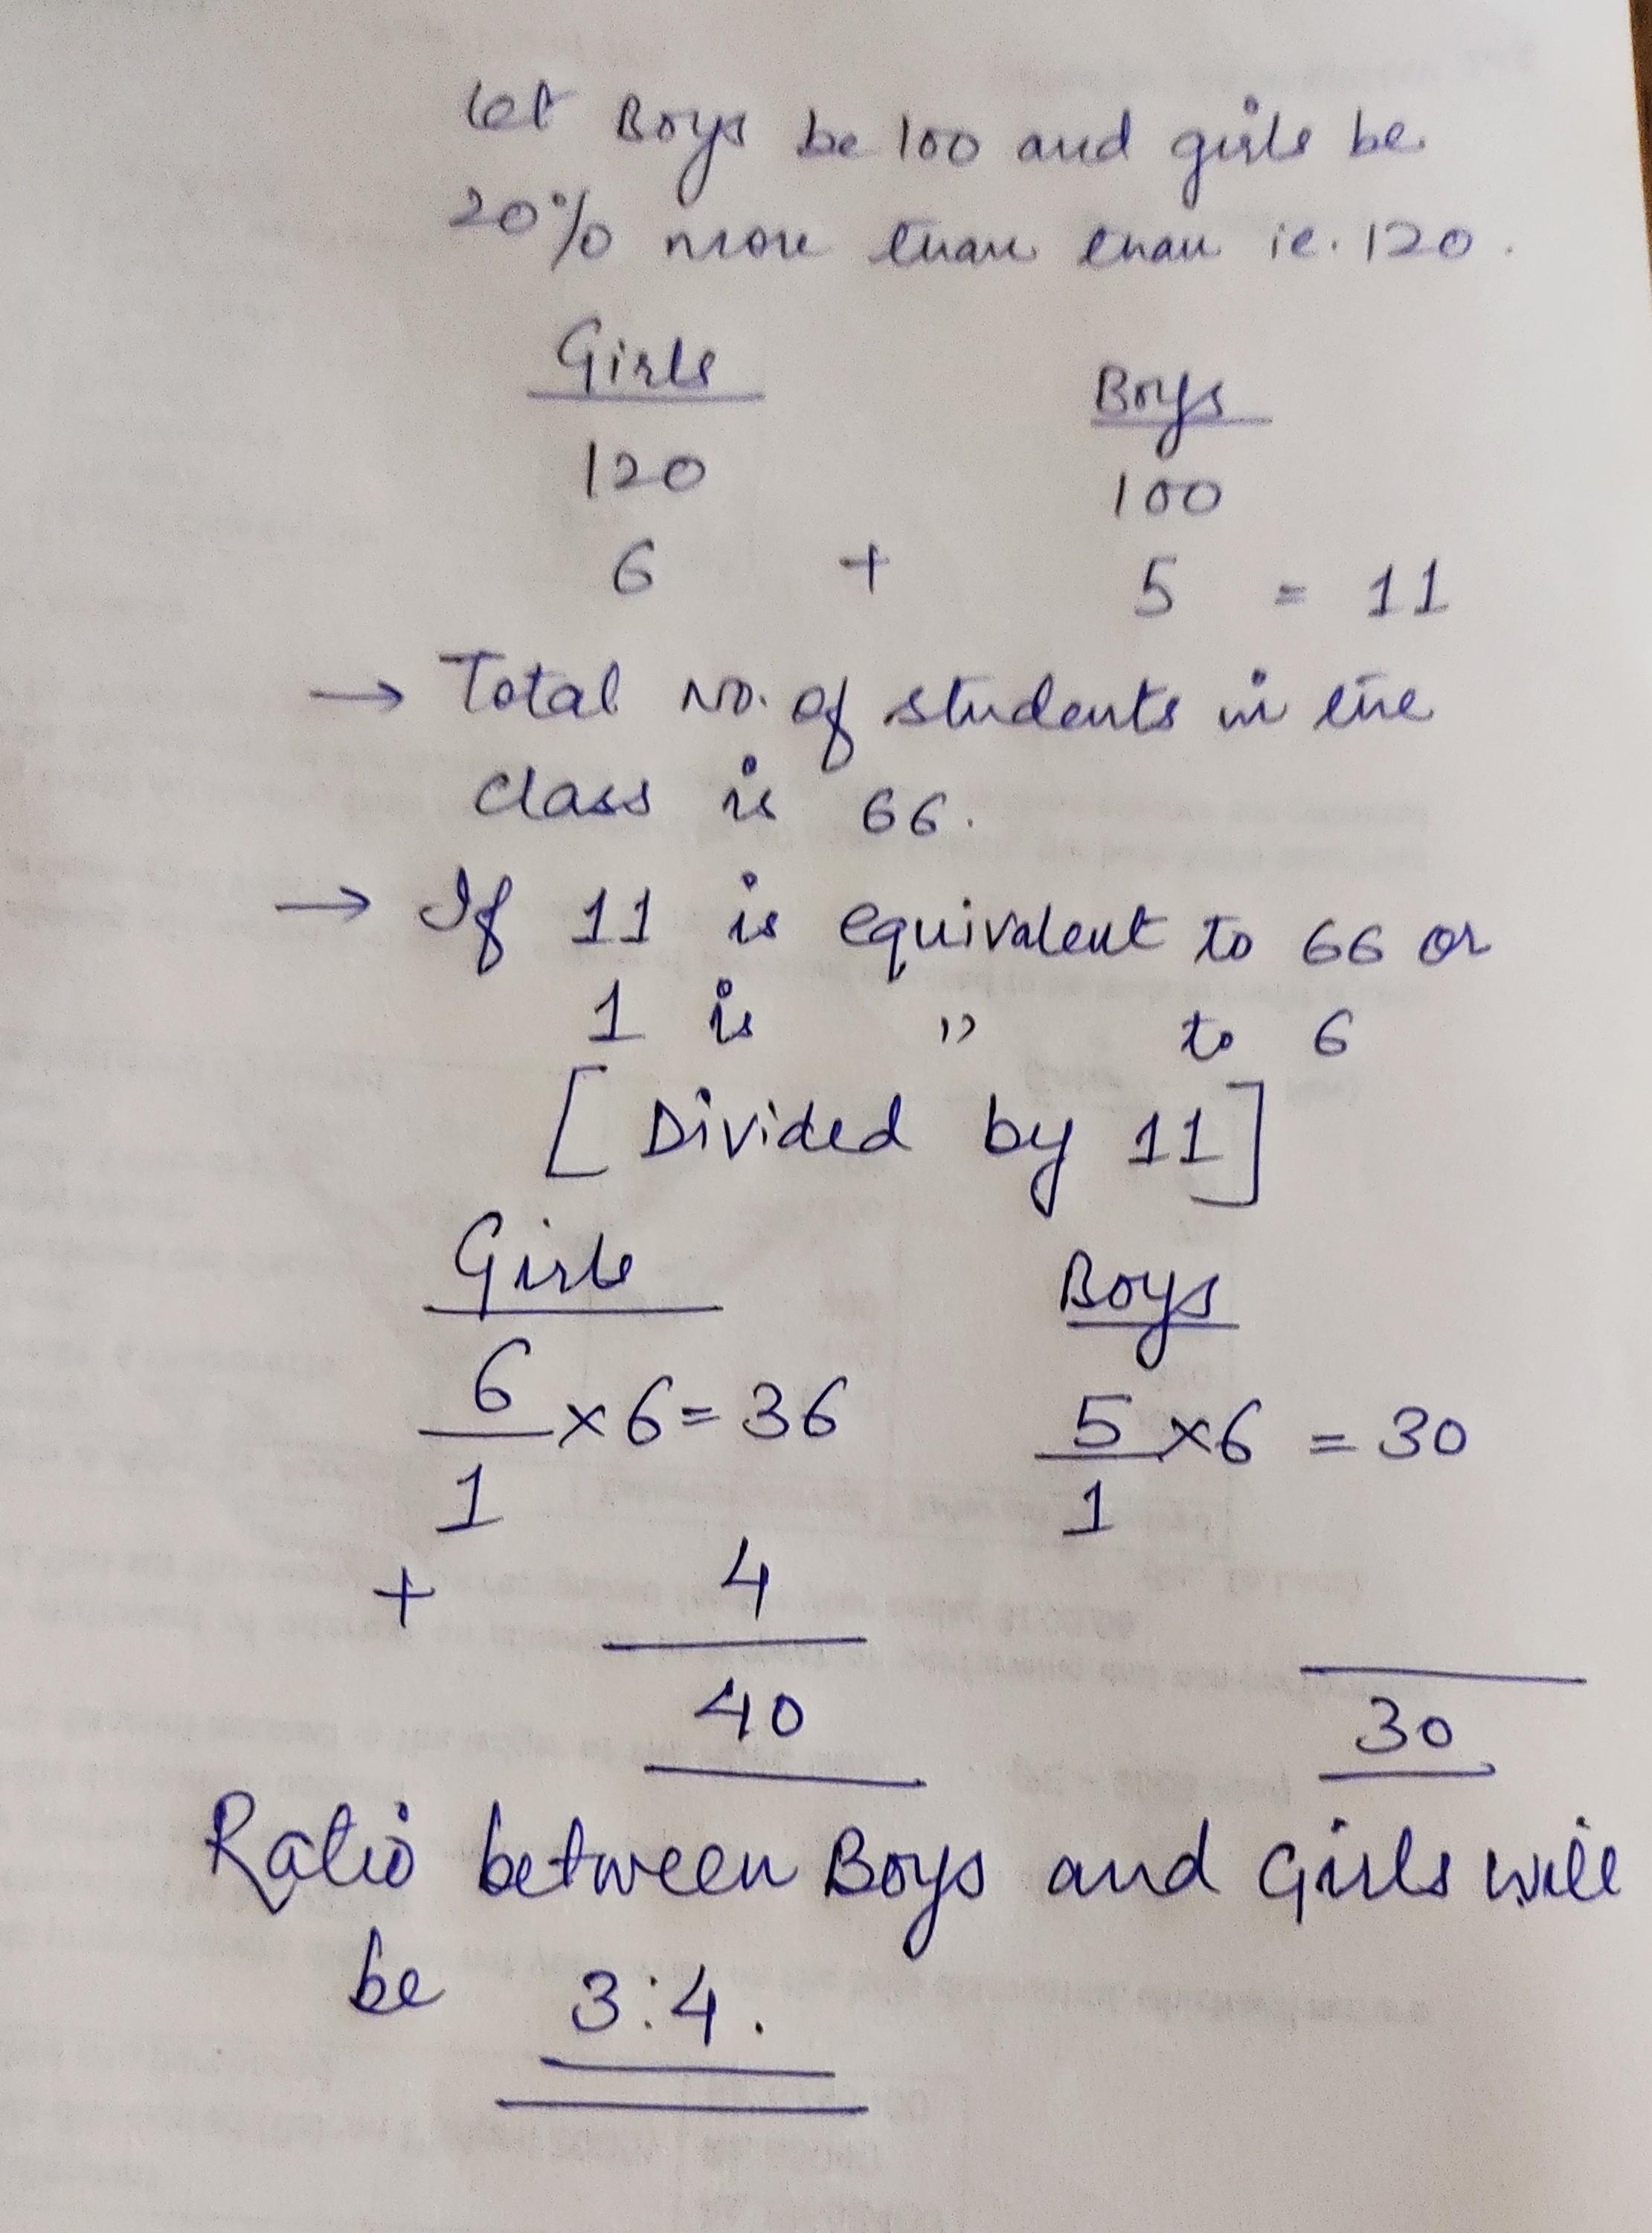 Let Boys be 100 and girls be
20% more than than ie. 120.
Girls Boys
120 100
6 + 5 = 11
→ Total No. of students in the
class is 66.
→ If 11 is equivalent to 66 or
1 is " to 6
[Divided by 11]
Girls Boys
6/1 × 6 = 36 5/1 × 6 = 30
+ 4
40 30
Ratio between Boys and Girls will
be 3:4.